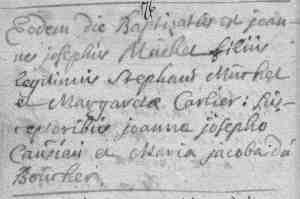 76
Eodem die Baptizatus est joan-
nes josephus Muchet filius
legitimus Stephani Muchet
et Margaretae Carlier: sus-
ceptoribus joanne josepho
et Maria jacoba du
Bourcher.